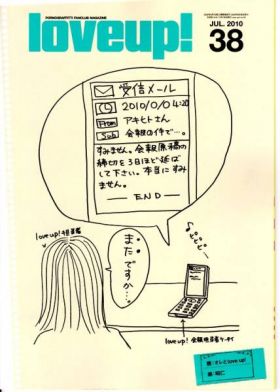 PORNOGRAFFITTI FANCLUB MAGAZINE
loveup!
JUL. 2010
38
受信メール
2010/0/0 4:20
From アキヒトさん
Sub 会報の件で…。
すみません。会報原稿の
締切を3日ほど延ば
して下さい。本当にすみ
ません。
— END —
love up! 担当者
また
ですか…。
love up! 会報担当者ケータイ
題：オレとlove up!
画：昭仁